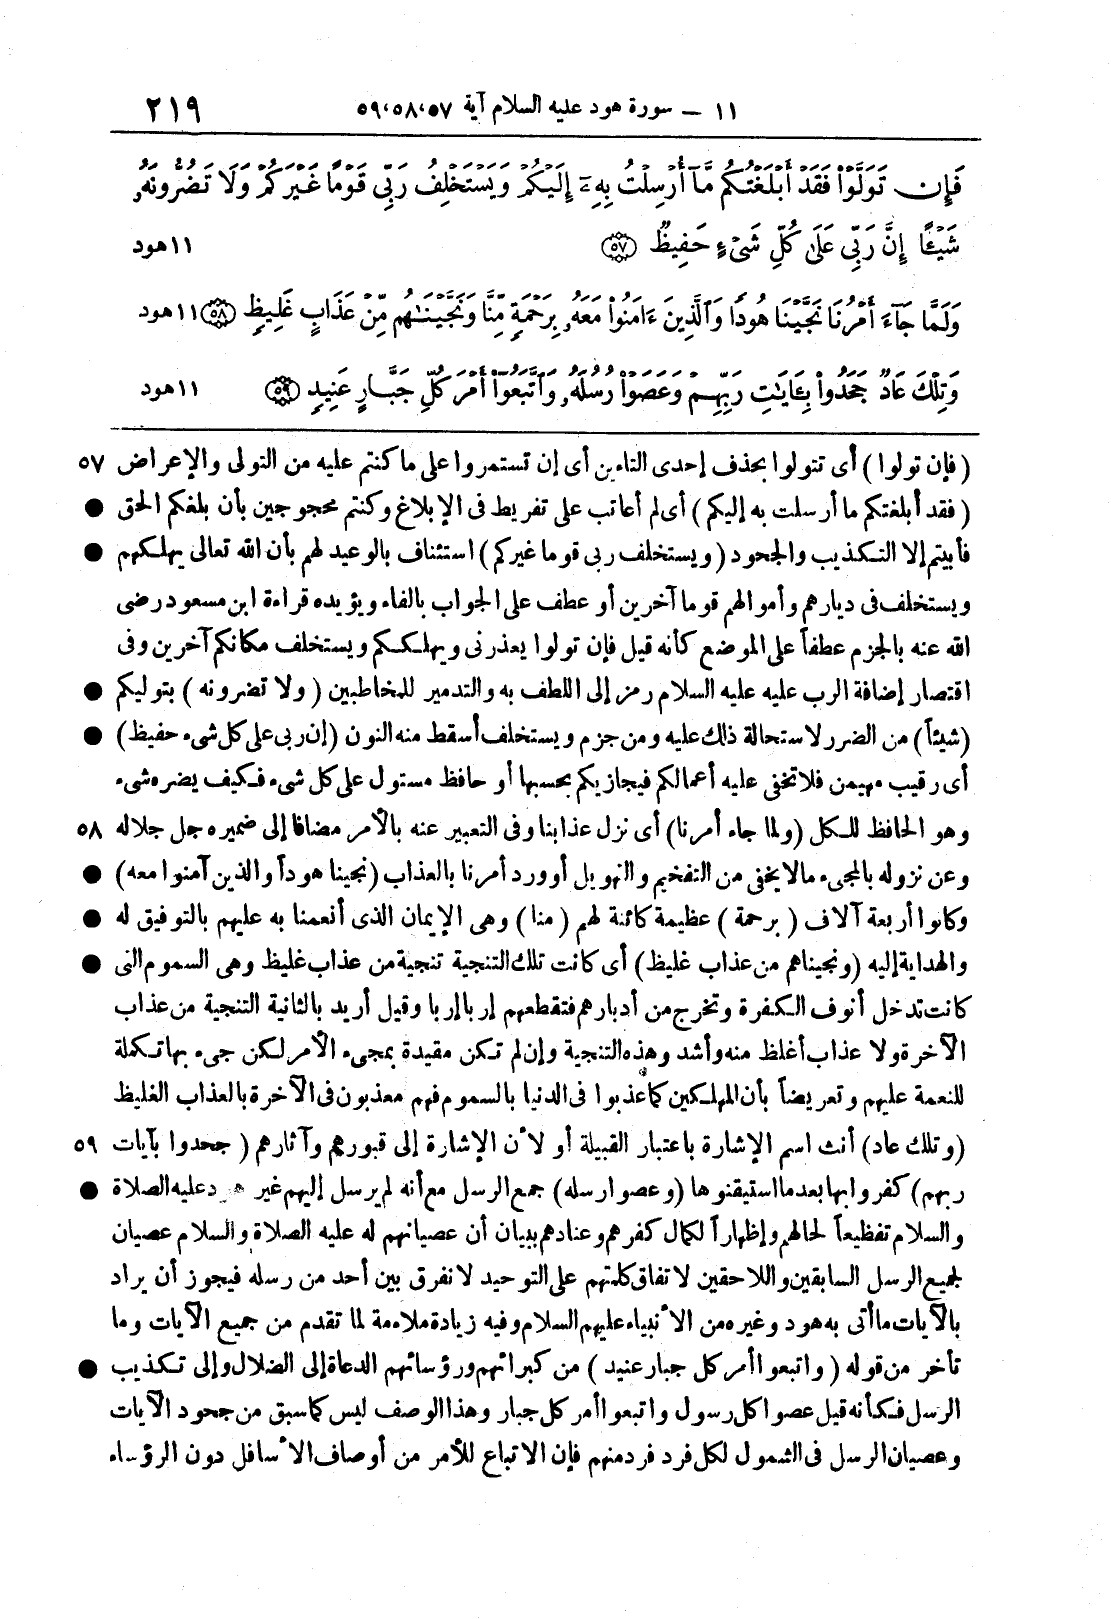 ١١ – سورة هود عليه السلام آية ٥٧،٥٨،٥٩ ٢١٩
فَإِن تَوَلَّوْاْ فَقَدْ أَبْلَغْتُكُم مَّآ أُرْسِلْتُ بِهِۦٓ إِلَيْكُمْ وَيَسْتَخْلِفُ رَبِّى قَوْمًا غَيْرَكُمْ وَلَا تَضُرُّونَهُۥ
شَيْـًٔا إِنَّ رَبِّى عَلَىٰ كُلِّ شَىْءٍ حَفِيظٌ ﴿٥٧﴾ ١١ هود
وَلَمَّا جَآءَ أَمْرُنَا نَجَّيْنَا هُودًا وَٱلَّذِينَ ءَامَنُواْ مَعَهُۥ بِرَحْمَةٍ مِّنَّا وَنَجَّيْنَـٰهُم مِّنْ عَذَابٍ غَلِيظٍ ﴿٥٨﴾ ١١ هود
وَتِلْكَ عَادٌ جَحَدُواْ بِـَٔايَـٰتِ رَبِّهِمْ وَعَصَوْاْ رُسُلَهُۥ وَٱتَّبَعُوٓاْ أَمْرَ كُلِّ جَبَّارٍ عَنِيدٍ ﴿٥٩﴾ ١١ هود
(فإن تولوا) أى تتولوا بحذف إحدى التاءين أى إن تستمروا على ما كنتم عليه من التولى والإعراض ٥٧
(فقد أبلغتكم ما أرسلت به إليكم) أى لم أعاتب على تفريط فى الإبلاغ وكنتم محجوجين بأن بلغكم الحق ●
فأبيتم إلا التكذيب والجحود (ويستخلف ربى قوما غيركم) استئناف بالوعيد لهم بأن الله تعالى يهلكهم ●
ويستخلف فى ديارهم وأموالهم قوما آخرين أو عطف على الجواب بالفاء ويؤيده قراءة ابن مسعود رضى
الله عنه بالجزم عطفاً على الموضع كأنه قيل فإن تولوا يعذرنى ويهلككم ويستخلف مكانكم آخرين وفى
اقتصار إضافة الرب عليه عليه السلام رمز إلى اللطف به والتدمير للمخاطبين (ولا تضرونه) بتوليكم ●
(شيئاً) من الضرر لاستحالة ذلك عليه ومن جزم ويستخلف أسقط منه النون (إن ربى على كل شىء حفيظ) ●
أى رقيب مهيمن فلا تخفى عليه أعمالكم فيجازيكم بحسبها أو حافظ مستول على كل شىء فكيف يضره شىء
وهو الحافظ للكل (ولما جاء أمرنا) أى نزل عذابنا وفى التعبير عنه بالأمر مضافا إلى ضميره جل جلاله ٥٨
وعن نزوله بالمجىء مالا يخفى من التفخيم والتهويل أو ورد أمرنا بالعذاب (نجينا هوداً والذين آمنوا معه) ●
وكانوا أربعة آلاف (برحمة) عظيمة كائنة لهم (منا) وهى الإيمان الذى أنعمنا به عليهم بالتوفيق له ●
والهداية إليه (ونجيناهم من عذاب غليظ) أى كانت تلك التنجية تنجية من عذاب غليظ وهى السموم التى ●
كانت تدخل أنوف الكفرة وتخرج من أدبارهم فتقطعهم إربا إربا وقيل أريد بالثانية التنجية من عذاب
الآخرة ولا عذاب أغلظ منه وأشد وهذه التنجية وإن لم تكن مقيدة بمجىء الأمر لكن جىء بها تكملة
للنعمة عليهم وتعريضاً بأن المهلكين كما عذبوا فى الدنيا بالسموم فهم معذبون فى الآخرة بالعذاب الغليظ
(وتلك عاد) أنث اسم الإشارة باعتبار القبيلة أو لأن الإشارة إلى قبورهم وآثارهم (جحدوا بآيات ٥٩
ربهم) كفروا بها بعد ما استيقنوها (وعصوا رسله) جمع الرسل مع أنه لم يرسل إليهم غير هود عليه الصلاة ●
والسلام تفظيعاً لحالهم وإظهاراً لكمال كفرهم وعنادهم ببيان أن عصيانهم له عليه الصلاة والسلام عصيان
لجميع الرسل السابقين واللاحقين لاتفاق كلمتهم على التوحيد لا نفرق بين أحد من رسله فيجوز أن يراد
بالآيات ما أتى به هود وغيره من الأنبياء عليهم السلام وفيه زيادة ملاءمة لما تقدم من جميع الآيات وما
تأخر من قوله (واتبعوا أمر كل جبار عنيد) من كبرائهم ورؤسائهم الدعاة إلى الضلال وإلى تكذيب ●
الرسل فكأنه قيل عصوا كل رسول واتبعوا أمر كل جبار وهذا الوصف ليس كما سبق من جحود الآيات
وعصيان الرسل فى الشمول لكل فرد فرد منهم فإن الاتباع للأمر من أوصاف الأسافل دون الرؤساء